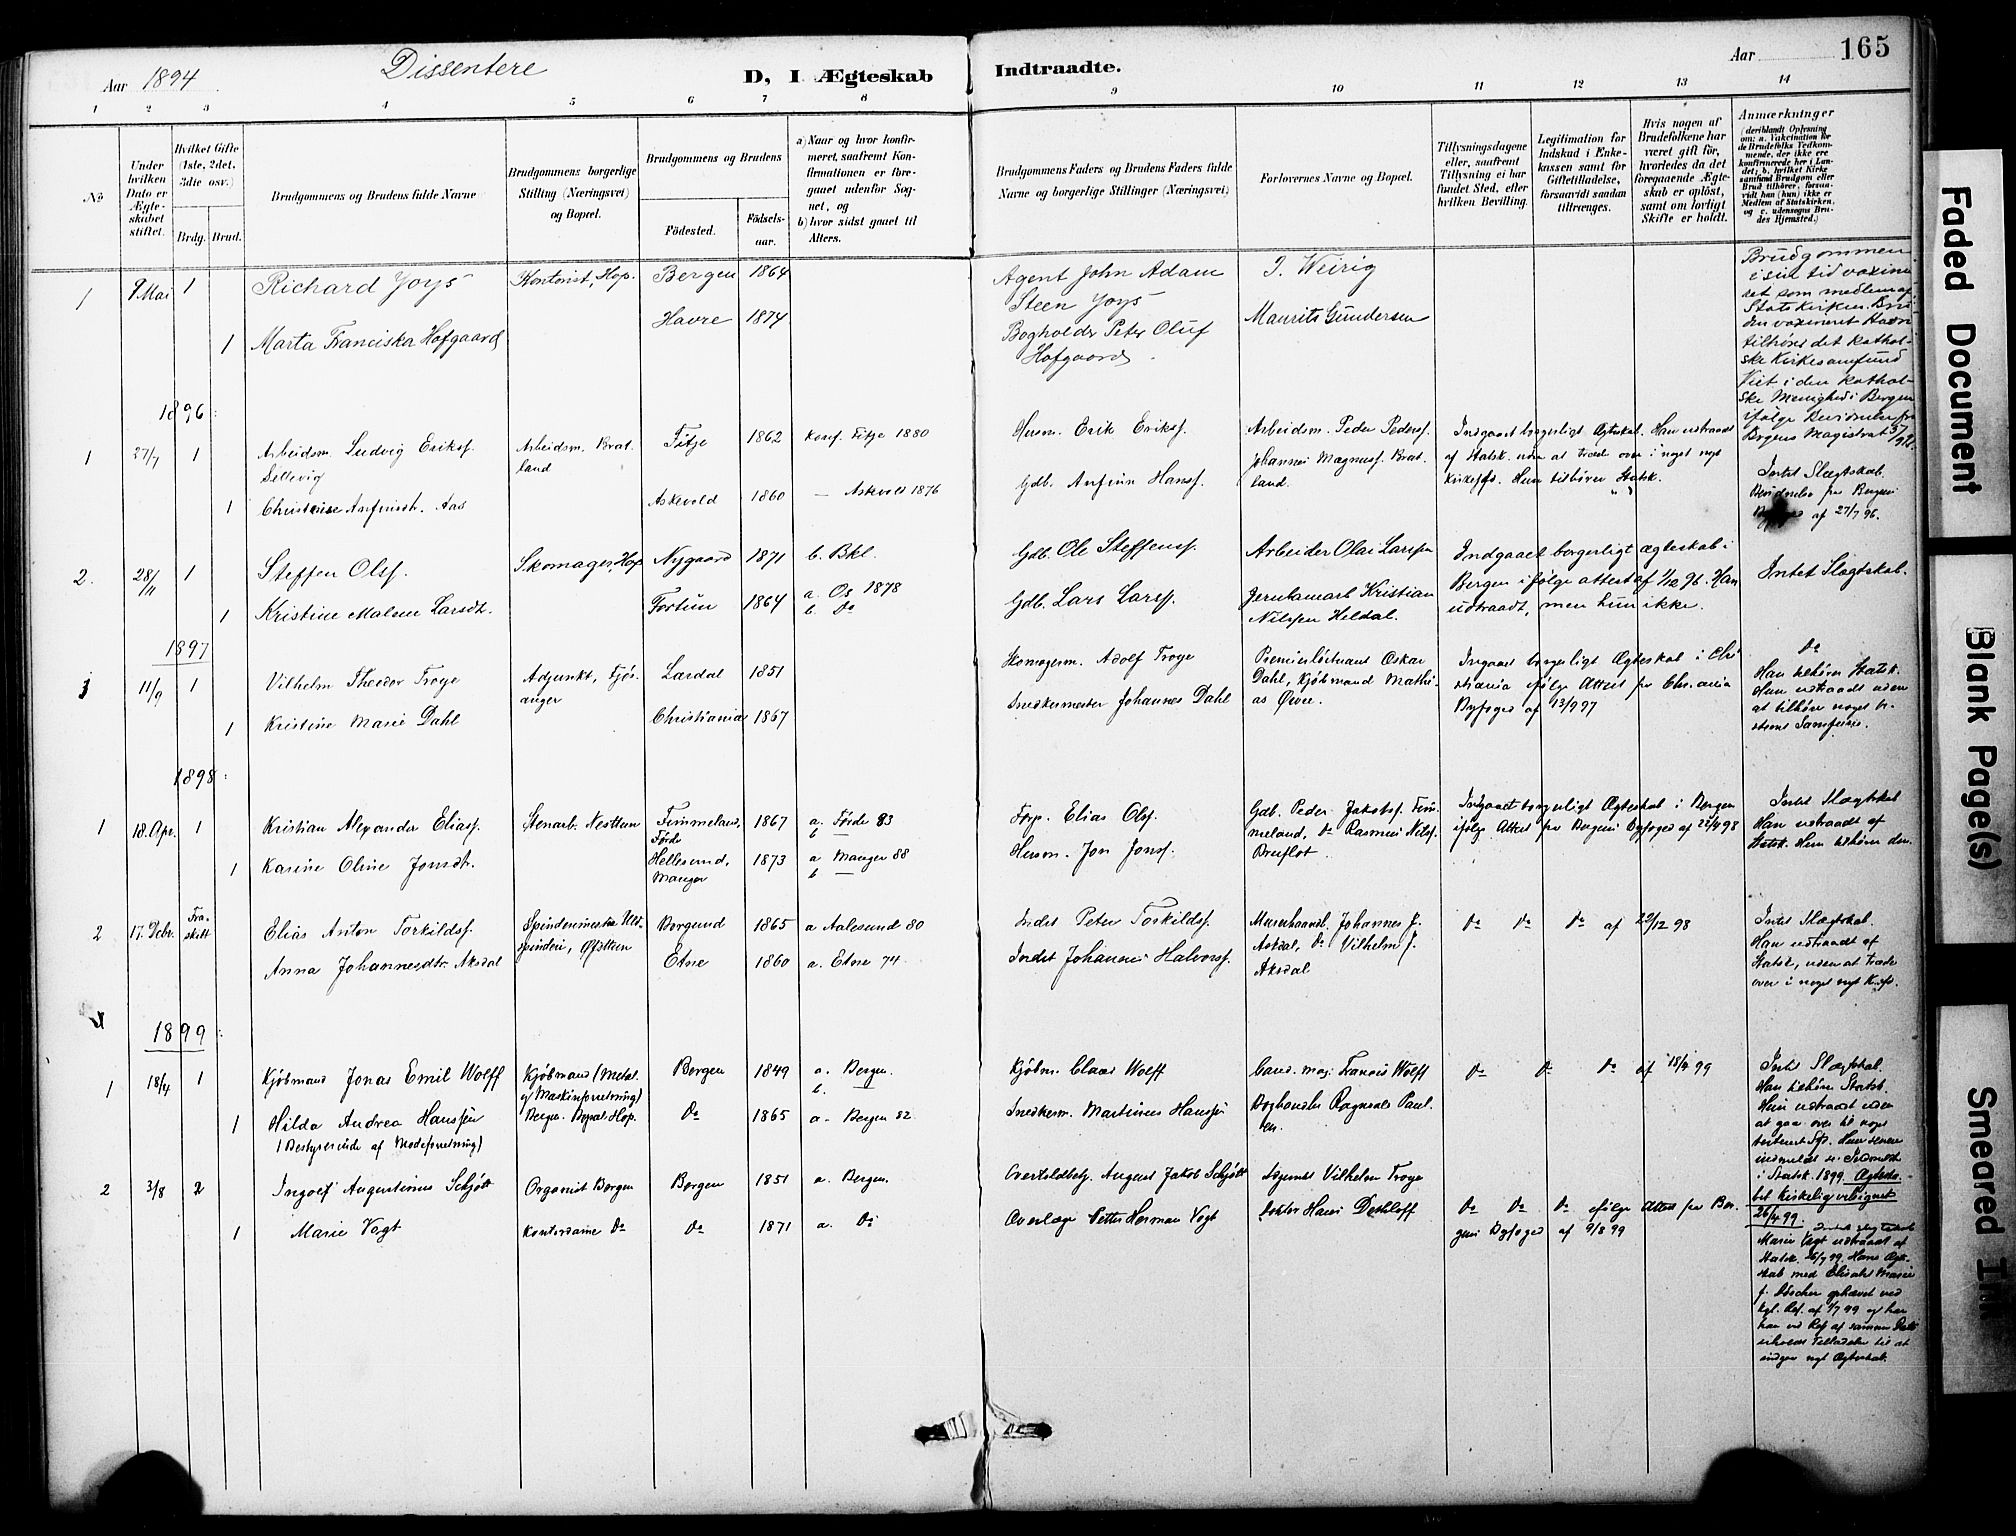 Aar 1894
Dissentere
D, I Ægteskab Indtraadte.
Aar
165
1 2 3 4 5 6 7 8 9 10 11 12 13 14
No
Under hvilken Dato er Ægteskabet stiftet.
Hvilket Gifte (1ste, 2det, 3die osv.)
Brdg. Brud.
Brudgommens og Brudens fulde Navne
Brudgommens borgerlige Stilling (Næringsvei) og Bopæl.
Brudgommens og Brudens
Födested. Födselsaar.
a) Naar og hvor konfirmeret, saafremt Konfirmationen er foregaaet udenfor Sognet, og
b) hvor sidst gaaet til Alters.
Brudgommens Faders og Brudens Faders fulde Navne og borgerlige Stillinger (Næringsvei)
Forlovernes Navne og Bopæl.
Tillysningsdagene eller, saafremt Tillysning ei har fundet Sted, efter hvilken Bevilling.
Legitimation for Indskud i Enkekassen samt for Giftetilladelse, forsaavidt saadan tiltrænges.
Hvis nogen af Brudefolkene har været gift för, hvorledes da det foregaaende Ægteskab er oplöst, samt om lovligt Skifte er holdt.
Anmærkninger
(deriblandt Oplysning om: a. Vakcination for de Brudefolks Vedkommende, der ikke ere konfirmerede her i Landet; b. hvilket Kirkesamfund Brudgom eller Brud tilhörer, forsaavidt han (hun) ikke er Medlem af Statskirken, og c. udensogns Brudes Hjemsted.)
1 9 Mai 1 Richard Joys Kontorist, Hop. Bergen 1864
Agent John Adam Steen Joys J. Weirig
1 Marta Franciska Hofgaard Havre 1874
Bogholder Peter Oluf Hofgaard Maurits Gundersen
Brudgommen
i sin tid vaxine
ret som medlem af
Statskirken. Bru
den vaxineret Havre
tilhører det kathol-
ske Kirkesamfund
Viet i den kathol-
ske Menighed i Bergen
ifølge Bevidnelse fra
Bergens Magistrat
1896:
1 27/7 1 Arbeidsm. Ludvig Eriks. Sellevig Arbeidsm. Bratland Fitje 1862 Konf. Fitje 1880
Husm. Erik Eriksf. Arbeidsm. Peder Pedersf.
1 Christine Anfinsdt. Aas Askevold 1860 — Askevold 1876
Gdb. Anfinn Hansf. Johannes Magnusf. Bratland.
Indgaaet borgerligt Ægteskab. Han udtraadt
af Statsk. uden at træde over i noget nyt
Kirkesfd. Hun tilhører Statsk.
Intet Slægtskab.
Bevidnelse fra Bergens
af 27/7 96.
2. 28/11 1 Steffen Olsf. Skomager, Hop Nygaard 1871 b. Bkl.
Gdb. Ole Steffensf. Arbeider Olai Larssen
1 Kristine Malene Larsdt. Fortun 1864 a. Os 1878 b. Do
Gdb. Lars Larsf. Jernbanearb Kristian Nilssen Heldal.
Indgaaet borgerligt ægteskab i
Bergen ifølge attest af 1/12 96. Han
udtraadt, men hun ikke.
Intet Slægtskab.
1897
3 11/9 1 Vilhelm Theodor Troye Adjunkt, Fjøsanger Lærdal 1851
Skomagerm. Adolf Troye Premierløitnant Oskar
1 Kristine Marie Dahl Christiania 1867
Snedkermester Johannes Dahl Dahl, Kjøbmand Mathias Øvre.
Ingaaet borgerligt Ægteskab i Chri
stiania ifølge Attest fra Chr.ania
Byfoged af 13/9 97
Do
Han tilhører Statsk.
Hun udtraadt uden
at tilhøre noget be
stemt Samfund.
1898:
1 18. Apr. 1 Kristian Alexander Eliasf. Stenarb. Nesttun Timmeland, Førde 1867 a. Førde 83 b
Forp. Elias Olsf. Gdb. Peder Jakobsf. Timmeland, Do Rasmus Nilsf. Bruflot.
1 Karine Oline Jonsdt. Hellesund, Manger 1873 a Manger 88 b —
Husm. Jon Jonsf.
Indgaaet borgerligt Ægteskab i Bergen
ifølge Attest fra Bergens Byfoged af 22/4 98
Intet Slægtskab
Han udtraadt af
Statsk. Hun tilhører den.
2 17. Debr. Fraskilt Elias Anton Torkildsf. Spindemester Uldspinderi, Øvsttun Borgund 1865 a Aalesund 80
Inds. Peter Torkildsf. Murerhaandl. Johannes J.
Anna Johannesdtr. Aksdal Etne 1860 a. Etne 74.
Inds. Johannes Halvorsf. Aksdal, Do Vilhelm J. Aksdal
Do Do Do af 22/12 98
Intet Slægtskab.
Han udtraadt af
Statsk, uden at træde
over i noget nyt K.sfd.
1899:
1 18/4 1 Kjøbmand Jonas Emil Wolff Kjøbmand (Metal og Maskinforretning) Bergen. Bopæl Hop. Bergen 1849 a. Bergen. b. —
Kjøbm. Claus Wolff Cand. mag. Francis Wolff Do Do Do af 18/4 99
1 Hilda Andrea Hanssen Do 1865 a. Bergen 82
(Bestyrerinde af Modeforretning)
Snedkerm. Martinus Hanssen Boghandler Ragnvald Paulsen.
Intet Slægtskab.
Han tilhører Statsk.
Hun udtraadt uden
at gaa over til noget
bestemt Sfd. Hun senere
indmeldt
i Statsk. 1899. Ægteska-
bet kirkelig velsignet
26/4 99.
2 3/8 2 Ingolf Augustinus Schjøtt Organist Bergen Bergen 1851 a. Bergen.
Overtoldbetj. August Jakob Schjøtt Adjunkt Vilhelm Troye
1 Marie Vogt Kontordame Do Do 1871 a. Do
Overlæge Petter Herman Vogt Doktor Hans Dethloff
Do Do Do ifølge Attest fra Ber-
gens Byfoged af 9/8 99
Marie Vogt udtraadt af
Statsk. 26/7 99. Hans Ægte-
skab med Elisabet Marie
f. Löscher ophævet ved
kgl. Res. af 1/7 99 og har
han ved Res af samme Dato
erholdt Tilladelse til at
indgaa nyt Ægteskab.
Faded Document
Blank Page(s)
Smeared Ink